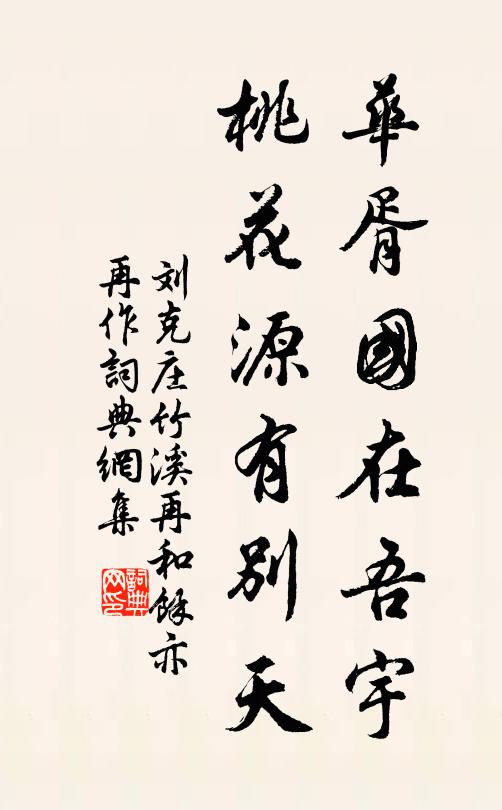 華胥國在吾宇
桃花源有別天
刘克庄竹溪再和馀亦
再作詞典網集
詞典
网印